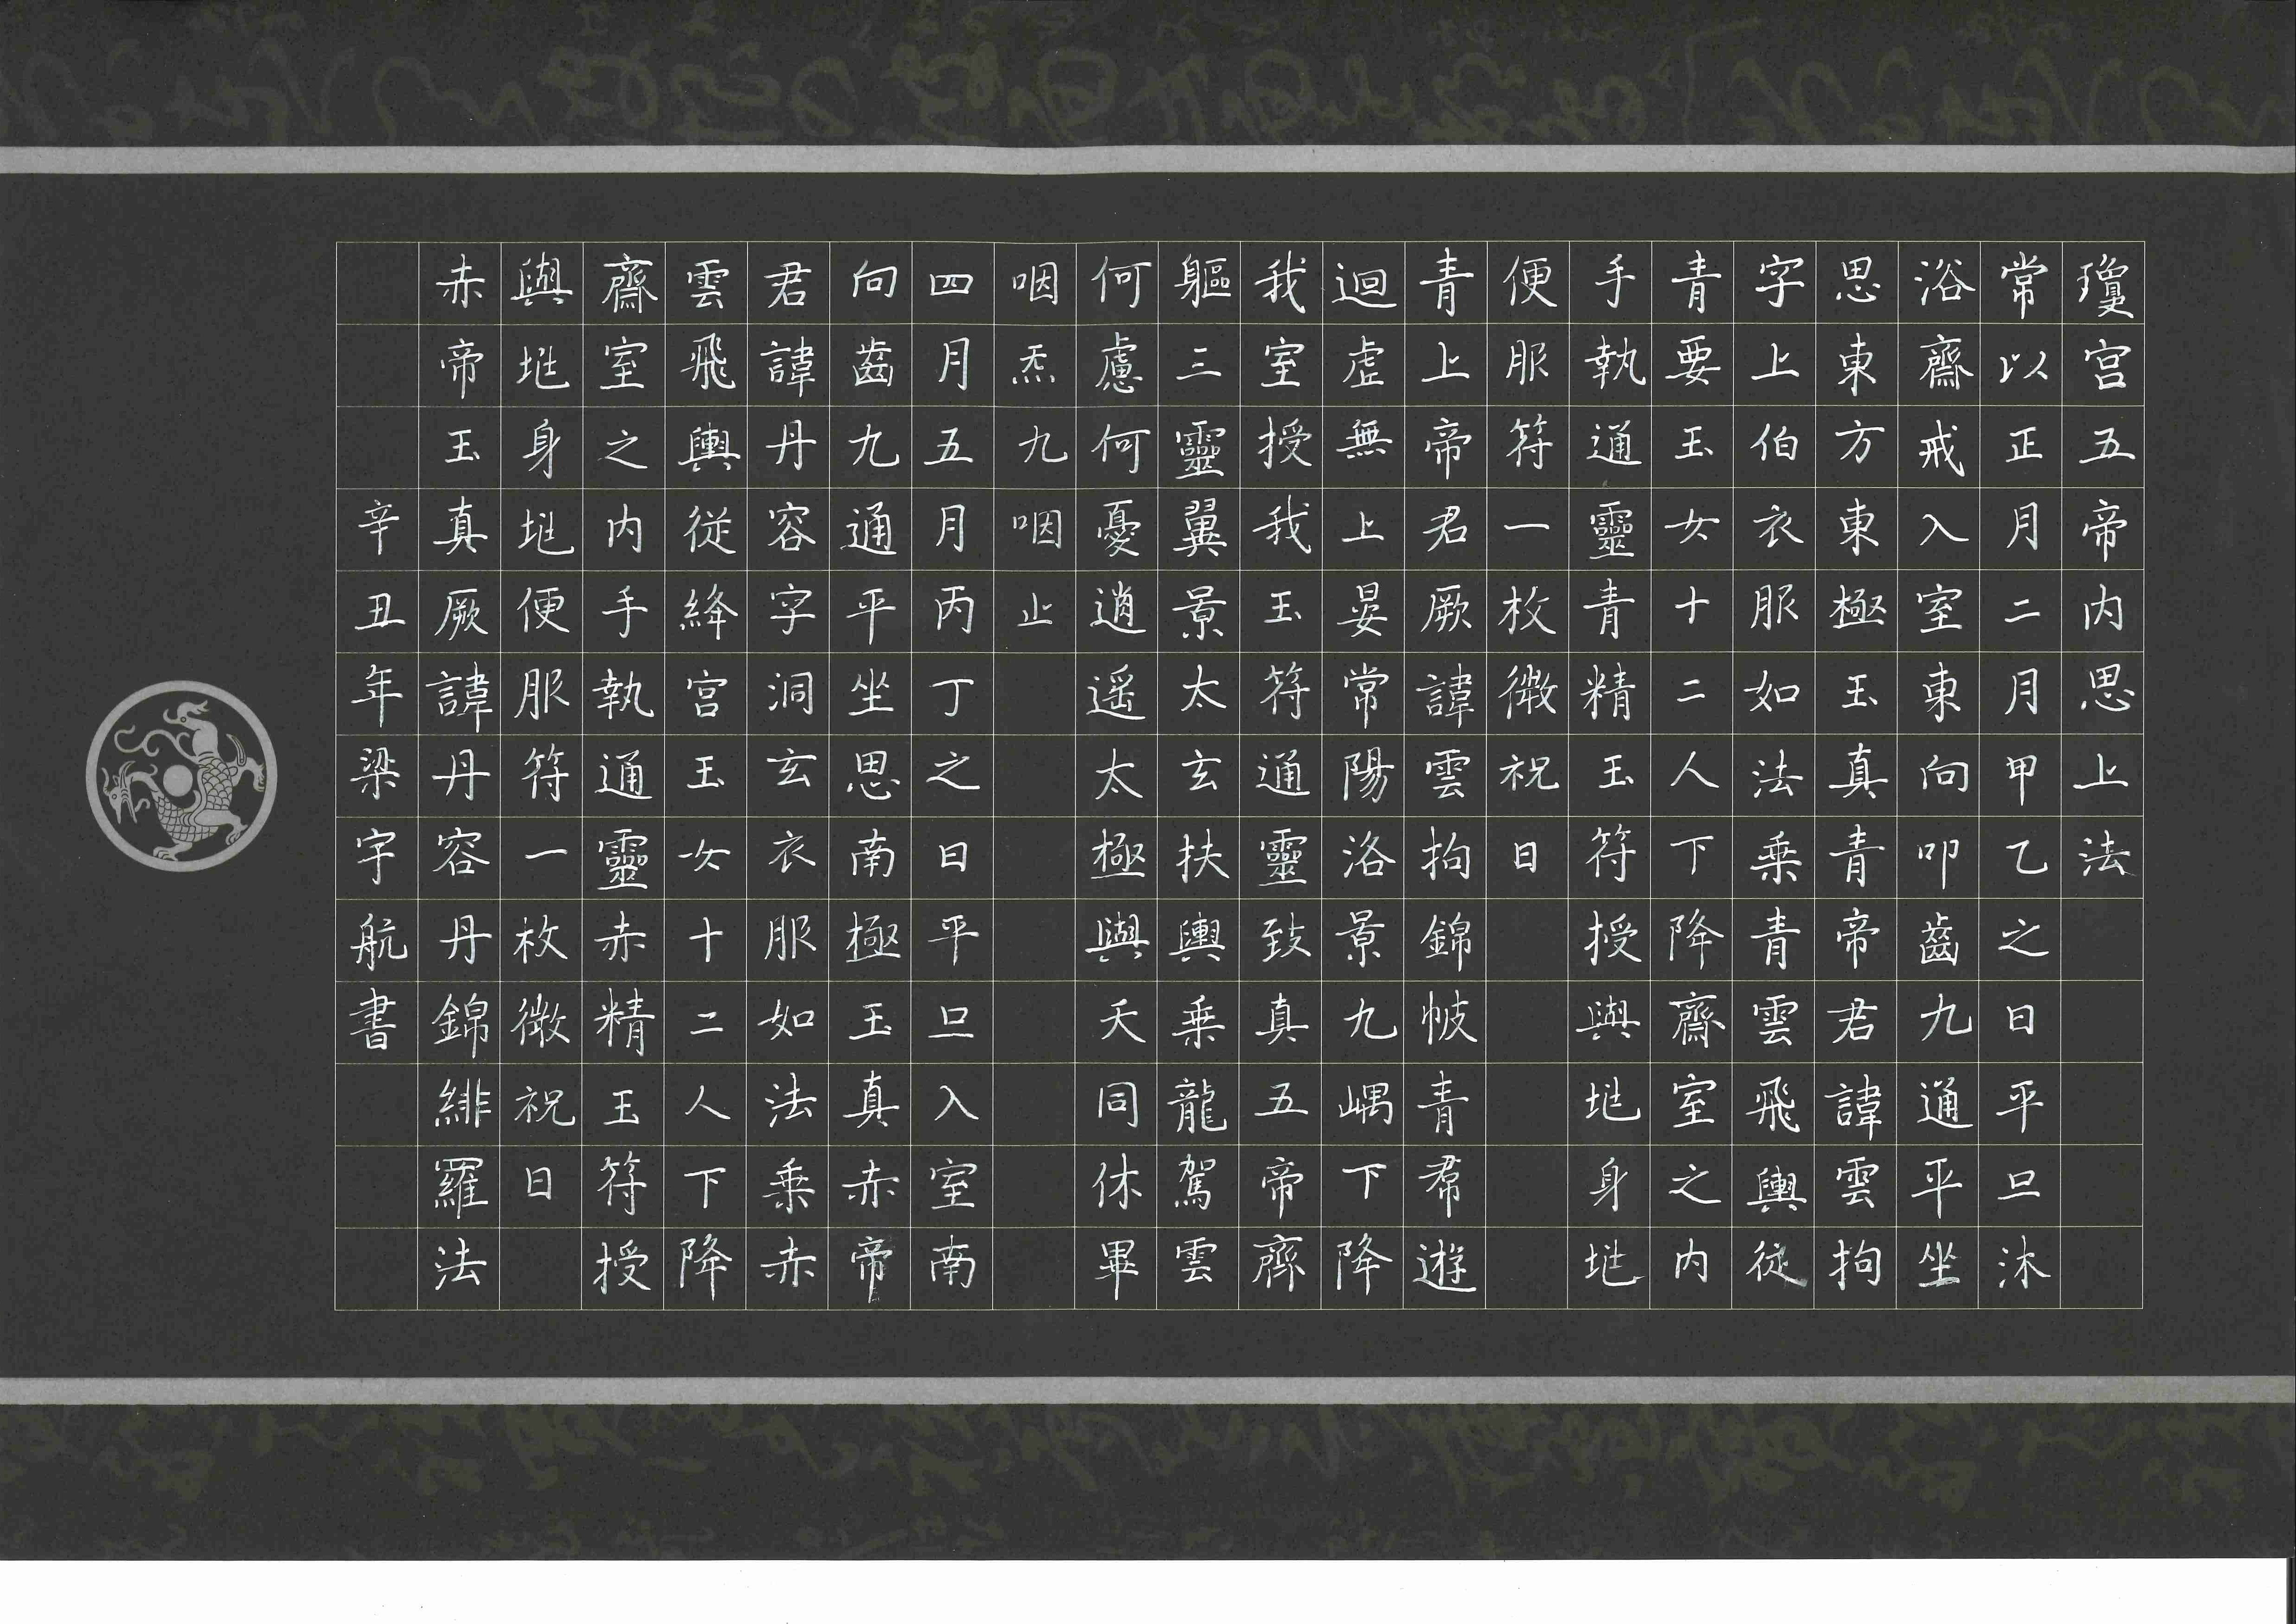 瓊宮五帝内思上法
常以正月二月甲乙之日平旦沐
浴齋戒入室東向叩齒九通平坐
思東方東極玉真青帝君諱雲拘
字上伯衣服如法乘青雲飛輿從
青要玉女十二人下降齋室之内
手執通靈青精玉符授與地身地
便服符一枚微祝曰
青上帝君厥諱雲拘錦帔青帬遊
迴虛無上晏常陽洛景九嵎下降
我室授我玉符通靈致真五帝齊
軀三靈翼景太玄扶輿乘龍駕雲
何慮何憂逍遥太極與天同休畢
咽炁九咽止
四月五月丙丁之日平旦入室南
向齒九通平坐思南極玉真赤帝
君諱丹容字洞玄衣服如法乘赤
雲飛輿從絳宮玉女十二人下降
齋室之内手執通靈赤精玉符授
與地身地便服符一枚微祝曰
赤帝玉真厥諱丹容丹錦緋羅法
辛丑年梁宇航書